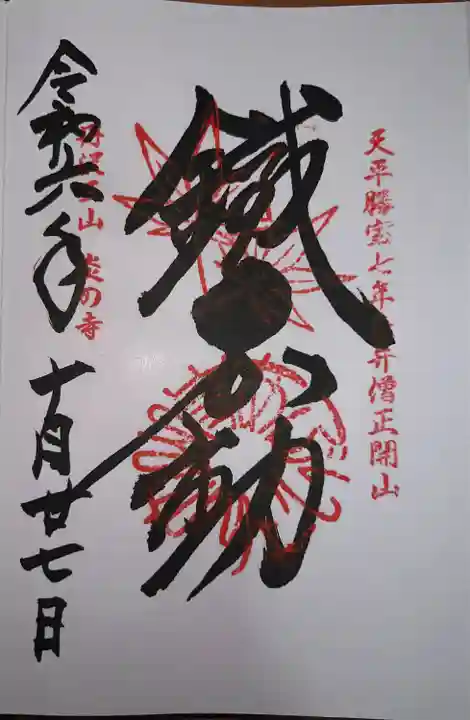 天平勝宝七年 弁僧正開山
鐵不動
山 炎の寺
令和六年十月廿七日